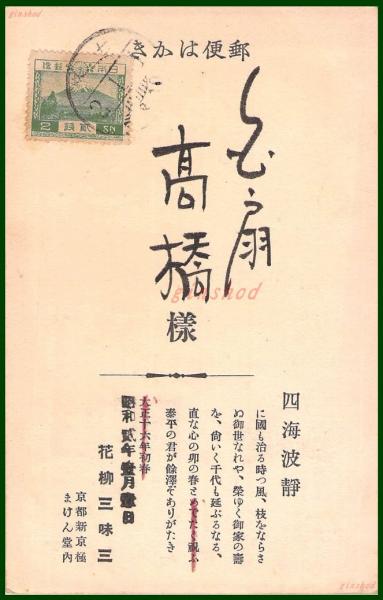 ginshod
郵便はかき
扇
高橋
樣
ginshod
四海波靜
に國も治る時つ風、枝をならさ
ぬ御世なれや、榮ゆく御家の壽
を、尙いく千代も延ぶるなる、
直な心の卯の春とめでたく祝ふ
泰平の君が餘澤ぞありがたき
大正十六年初春
昭和貳年壹月壹日
花柳三味三
京都新京極
まけん堂内
ginshod